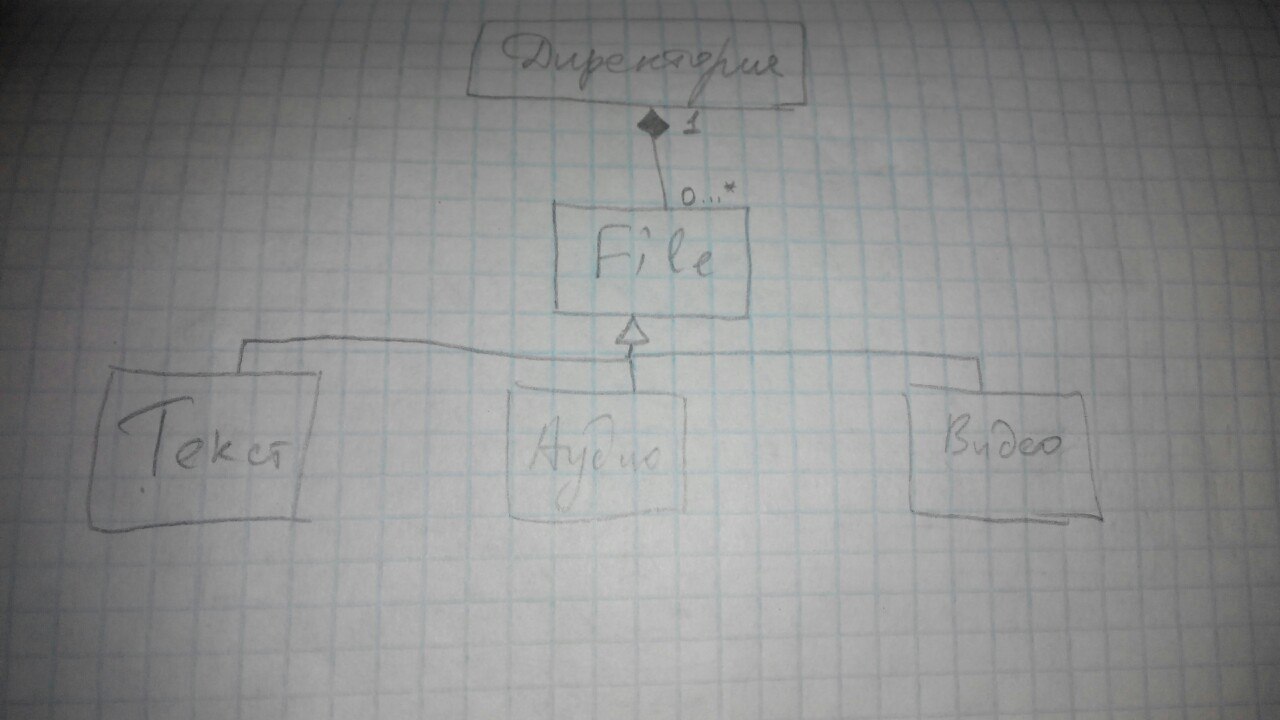 Директория
1
0...*
File
Текст
Аудио
Видео